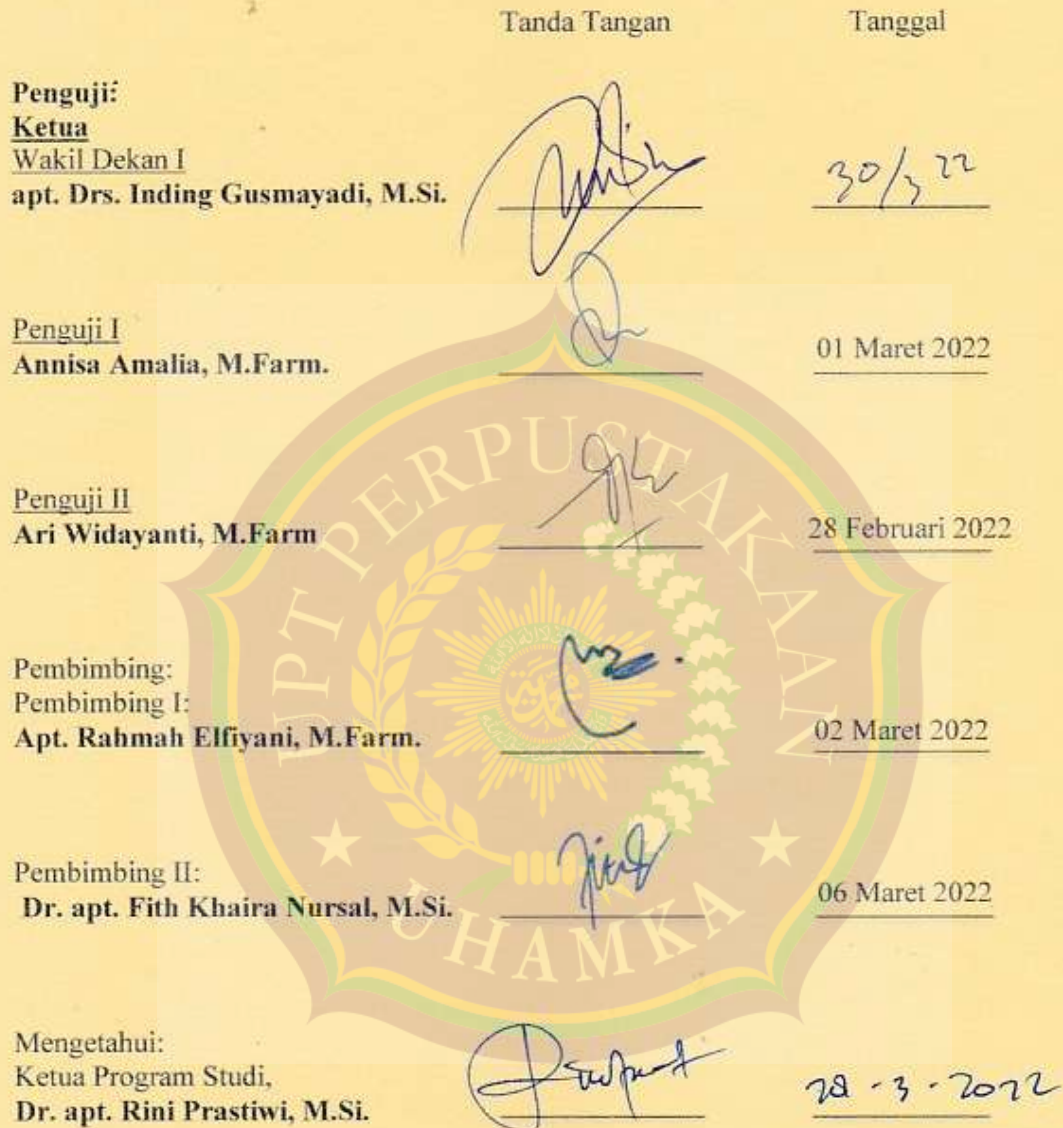 Tanda Tangan Tanggal
Penguji:
Ketua
Wakil Dekan I
apt. Drs. Inding Gusmayadi, M.Si. 30/3 22
Penguji I
Annisa Amalia, M.Farm. 01 Maret 2022
Penguji II
Ari Widayanti, M.Farm 28 Februari 2022
Pembimbing:
Pembimbing I:
Apt. Rahmah Elfiyani, M.Farm. 02 Maret 2022
Pembimbing II:
Dr. apt. Fith Khaira Nursal, M.Si. 06 Maret 2022
Mengetahui:
Ketua Program Studi,
Dr. apt. Rini Prastiwi, M.Si. 28-3-2022
UPT PERPUSTAKAAN
UHAMKA